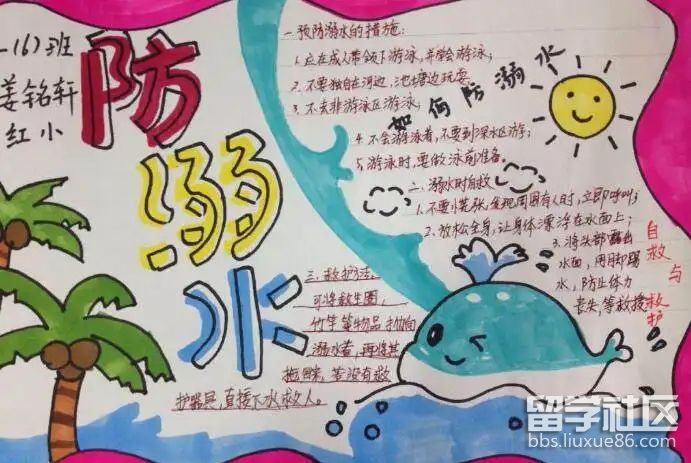 一(6)班
姜铭轩
红小
防
溺
水
一预防溺水的措施:
1.应在成人带领下游泳,并学会游泳
2.不要独自在河边,池塘边玩耍
3.不去非游泳区游泳
如何防溺水
4.不会游泳着,不要到深水区游;
5.游泳时,要做泳前准备。
二、溺水时自救
1.不要慌张,发现周围有人时,立即呼叫;
2.放松全身,让身体漂浮在水面上;
3.将头部露出
水面,用脚踢
水,防止体力
丧失,等救援
自救与救护
三.救护法:
可将救生圈,
竹竿等物品抛向
溺水者,再将其
拖回来,若没有救
护器具,直接下水救人。
留学社区
bbs.liuxue86.com